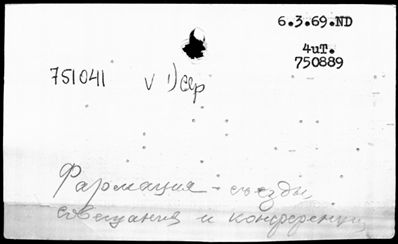 6.3.69.ND
4чТ.
750889
751041 V 1) сер
Фармация - съезды,
совещания и конференции